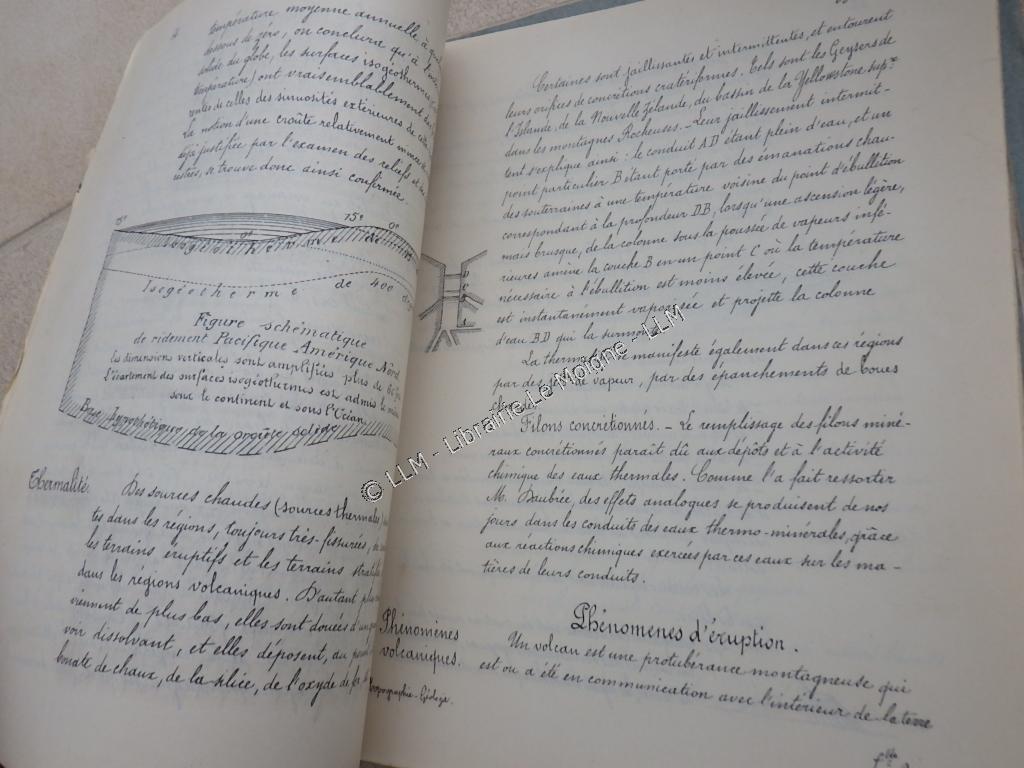 4
température moyenne annuelle à
dessous de zéro, on conclure qu'à l'
solide du globe, les surfaces isogéothermes
température) ont vraisemblablement des
rentes de celles des sinuosités extérieures de cette
La notion d'une croûte relativement mince
déjà justifiée par l'examen des reliefs
restres, se trouve donc ainsi confirmée.
15° 0°
0°
Isogéotherme de 400 de
Figure schématique
de ridement Pacifique-Amérique Nord.
les dimensions verticales sont amplifiées plus de
l'écartement des surfaces isogéothermes est admis le même
sous le continent et sous l'Océan
Base de la croûte solide
Thermalité.
Des sources chaudes (sources thermales)
tes dans les régions, toujours très-fissurées,
les terrains éruptifs et les terrains
dans les régions volcaniques. D'autant plus
viennent de plus bas, elles sont douées d'un
voir dissolvant, et elles déposent, au
bonate de chaux, de la silice, de l'oxyde de fer
Certaines sont jaillissantes et intermittentes, et entourent
leurs orifices de concrétions cratériformes. Tels sont les Geysers de
l'Islande, de la Nouvelle Zélande, du bassin de la Yellowstone supre
dans les montagnes Rocheuses. - Leur jaillissement intermit-
tent s'explique ainsi : le conduit AD étant plein d'eau, et un
point particulier B étant porté par des émanations chau-
des souterraines à une température voisine du point d'ébullition
correspondant à la profondeur DB, lorsqu'une ascension légère,
mais brusque, de la colonne sous la poussée de vapeurs infé-
rieures amène la couche B en un point C où la température
nécessaire à l'ébullition est moins élevée, cette couche
est instantanément vaporisée et projette la colonne
d'eau BD qui la
La se manifeste également dans ces régions
par des de vapeur, par des épanchements de boues
Filons concrétionnés. - Le remplissage des filons miné-
raux concrétionnés paraît dû aux dépôts et à l'activité
chimique des eaux thermales. Comme l'a fait ressortir
M. Daubrée, des effets analogues se produisent de nos
jours dans les conduits des eaux thermo-minérales, grâce
aux réactions chimiques exercées par ces eaux sur les ma-
tières de leurs conduits.
Phénomènes d'éruption.
Phénomènes
volcaniques.
Un volcan est une protubérance montagneuse qui
est ou a été en communication avec l'intérieur de la terre
Topographie-Géologie.
© LLM - Librairie Le Molone - LLM